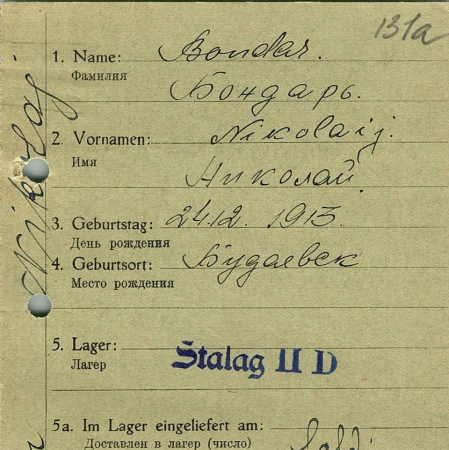 131a
1. Name: Bondar.
Фамилия Бондарь.
2. Vornamen: Nikolaij.
Имя Николай
3. Geburtstag: 24.12. 1913.
День рождения
4. Geburtsort: Будаевск
Место рождения
5. Lager: Stalag II D
Лагер
5a. Im Lager eingeliefert am:
Доставлен в лагер (число)
Nikolaj